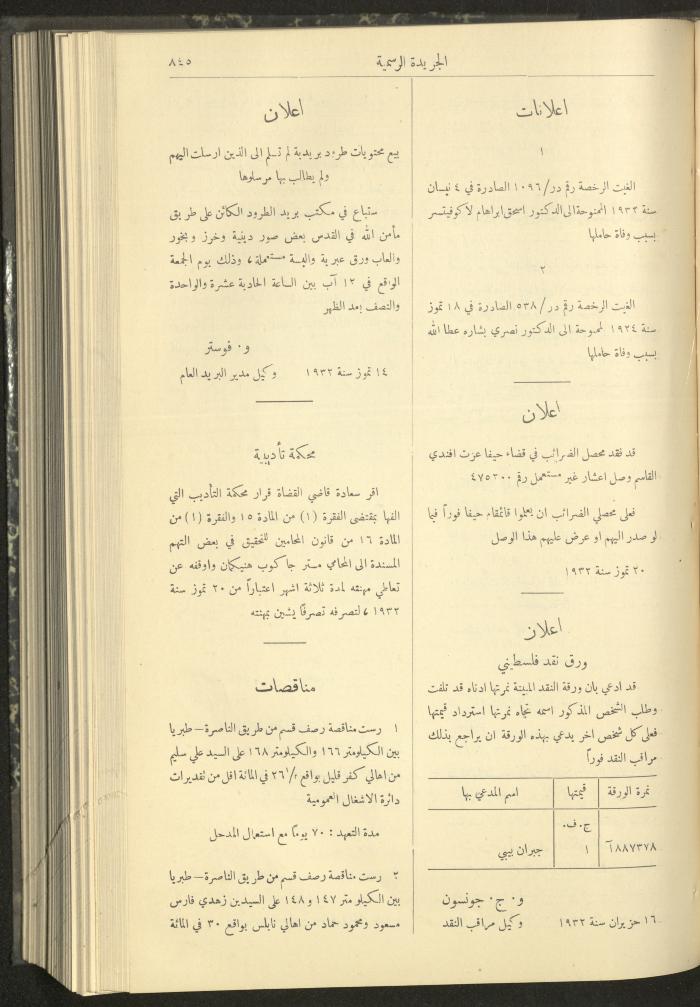 الجريدة الرسمية
٨٤٥
اعلانات
١
الغيت الرخصة رقم در/١٠٩٦ الصادرة في ٤ نيسان
سنة ١٩٣٢ الممنوحة الى الدكتور اسحق ابراهام لاكوفيتسر
بسبب وفاة حاملها
٢
الغيت الرخصة رقم در/٥٣٨ الصادرة في ١٨ تموز
سنة ١٩٢٤ الممنوحة الى الدكتور نصري بشاره عطا الله
بسبب وفاة حاملها
اعلان
قد فقد محصل الضرائب في قضاء حيفا عزت افندي
القاسم وصل اعشار غير مستعمل رقم ٤٧٥٣٠٠
فعلى محصلي الضرائب ان يعلموا قائمقام حيفا فوراً فيما
لو صدر اليهم او عرض عليهم هذا الوصل
٢٠ تموز سنة ١٩٣٢
اعلان
ورق نقد فلسطيني
قد ادعي بان ورقة النقد المبينة نمرتها ادناه قد تلفت
وطلب الشخص المذكور اسمه تجاه نمرتها استرداد قيمتها
فعلى كل شخص اخر يدعي بهذه الورقة ان يراجع بذلك
مراقب النقد فوراً
نمرة الورقة قيمتها اسم المدعي بها
ج.ف.
٨٨٧٣٧٨آ ١ جبران بيبي
و. ج. جونسون
١٦ حزيران سنة ١٩٣٢ وكيل مراقب النقد
اعلان
بيع محتويات طرود بريدية لم تسلم الى الذين ارسلت اليهم
ولم يطالب بها مرسلوها
ستباع في مكتب بريد الطرود الكائن على طريق
مأمن الله في القدس بعض صور دينية وخرز وبخور
والعاب ورق عبرية والبسة مستعملة، وذلك يوم الجمعة
الواقع في ١٢ آب بين الساعة الحادية عشرة والواحدة
والنصف بعد الظهر
و. فوستر
١٤ تموز سنة ١٩٣٢ وكيل مدير البريد العام
محكمة تأديبية
اقر سعادة قاضي القضاة قرار محكمة التأديب التي
الفها بمقتضى الفقرة (١) من المادة ١٥ والفقرة (١) من
المادة ١٦ من قانون المحامين للتحقيق في بعض التهم
المسندة الى المحامي مستر جاكوب هنيكمان واوقفه عن
تعاطي مهنته لمدة ثلاثة اشهر اعتباراً من ٢٠ تموز سنة
١٩٣٢، لتصرفه تصرفاً يشين بمهنته
مناقصات
١ رست مناقصة رصف قسم من طريق الناصرة – طبريا
بين الكيلومتر ١٦٦ والكيلومتر ١٦٨ على السيد علي سليم
من اهالي كفر قليل بواقع ٢٦ في المائة اقل من تقديرات
دائرة الاشغال العمومية
مدة التعهد : ٧٠ يوماً مع استعمال المدحل
٢ رست مناقصة رصف قسم من طريق الناصرة – طبريا
بين الكيلو متر ١٤٧ و ١٤٨ على السيدين زهدي فارس
مسعود ومحمود حماد من اهالي نابلس بواقع ٣٠ في المائة